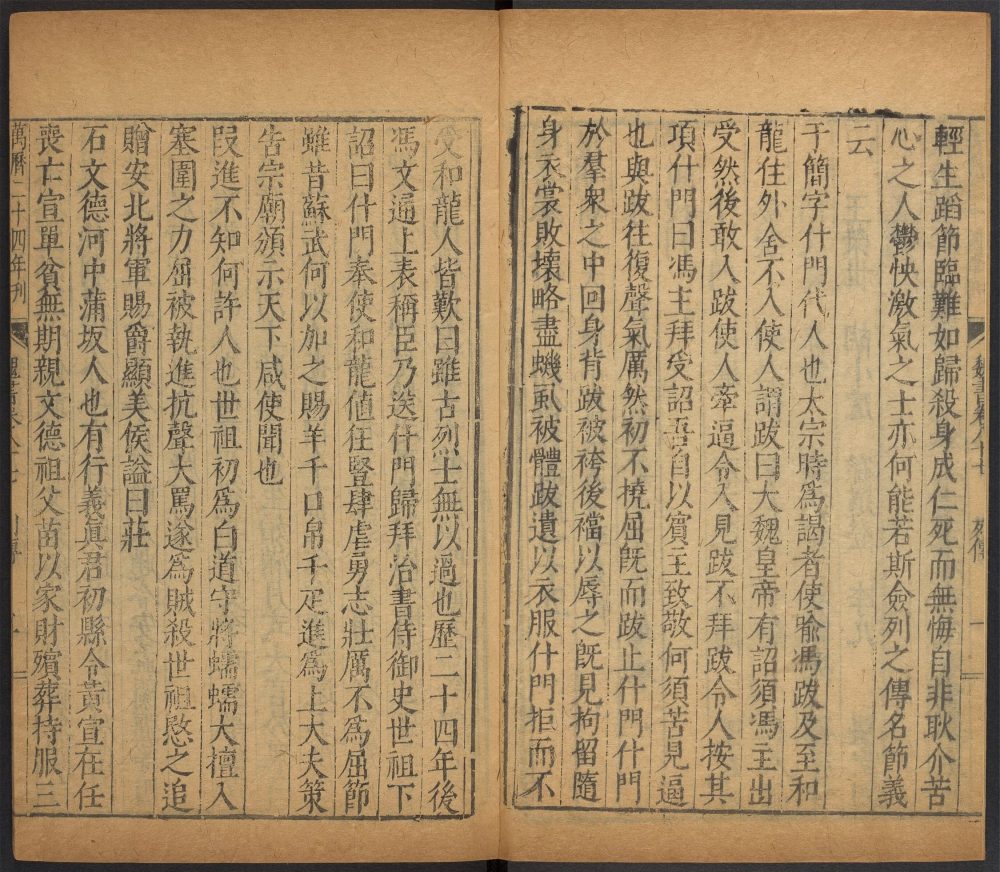 輕生蹈節臨難如歸殺身成仁死而無悔自非耿介苦
心之人鬱怏激氣之士亦何能若斯僉列之傳名節義
云
于簡字什門代人也太宗時爲謁者使喻馮跋及至和
龍住外舍不入使人謂跋曰大魏皇帝有詔須馮主出
受然後敢入跋使人牽逼令入見跋不拜跋令人按其
項什門曰馮主拜受詔吾自以賓主致敬何須苦見逼
也與跋往復聲氣厲然初不撓屈旣而跋止什門什門
於羣衆之中回身背跋被袴後襠以辱之旣見拘留隨
身衣裳敗壞略盡蟣虱被體跋遺以衣服什門拒而不
受和龍人皆歎曰雖古烈士無以過也歷二十四年後
馮文通上表稱臣乃送什門歸拜治書侍御史世祖下
詔曰什門奉使和龍値狂豎肆虐勇志壯厲不爲屈節
雖昔蘇武何以加之賜羊千口帛千疋進爲上大夫策
告宗廟頒示天下咸使聞也
段進不知何許人也世祖初爲白道守將蠕蠕大檀入
塞圍之力屈被執進抗聲大罵遂爲賊殺世祖愍之追
贈安北將軍賜爵顯美侯謚曰莊
石文德河中蒲坂人也有行義眞君初縣令黃宣在任
喪亡宣單貧無期親文德祖父苗以家財殯葬持服三
萬曆二十四年刊